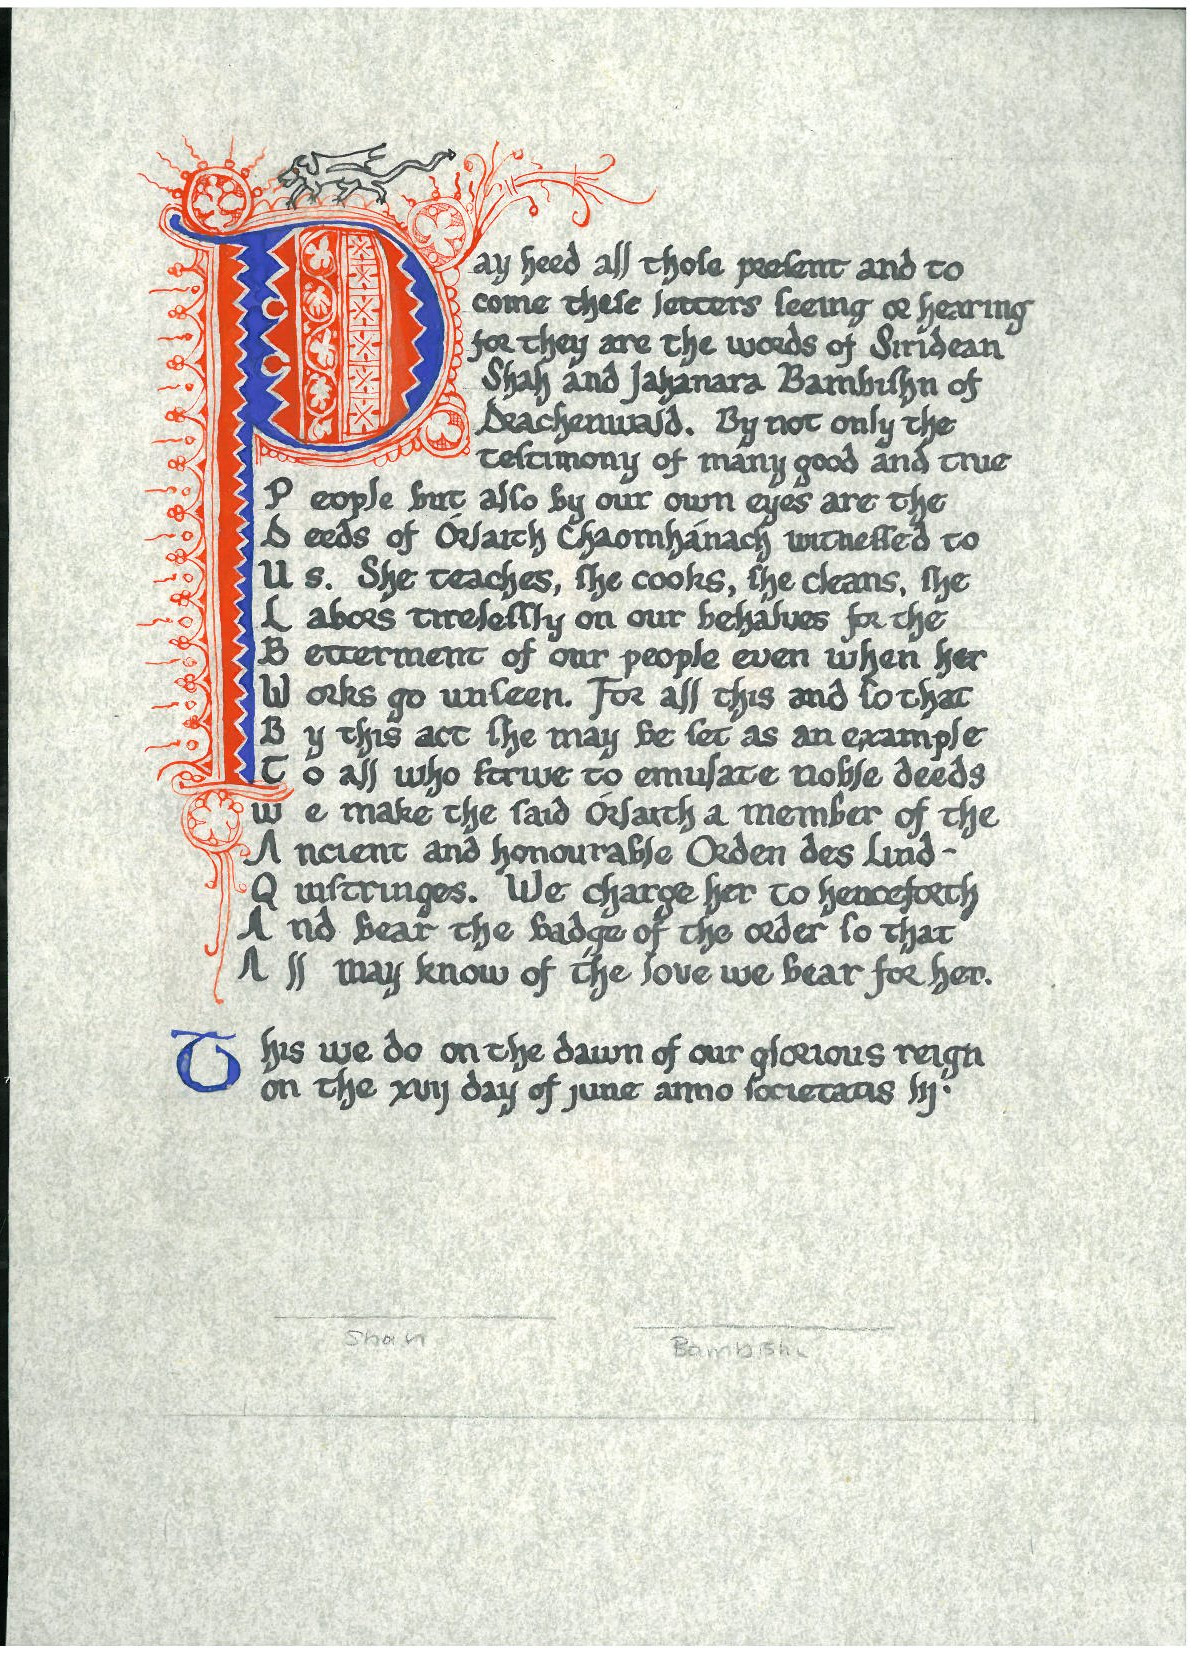 Pay heed all thoſe preſent and to
come theſe letters ſeeing or hearing
for they are the words of Siridean
Shah and Jahanara Bambiſhn of
Drachenwald. By not only the
teſtimony of many good and true
People but alſo by our own eyes are the
Deeds of Órlaith Chaomhánach witneſſed to
Us. She teaches, ſhe cooks, ſhe cleans, ſhe
Labors tireleſſly on our behalves for the
Betterment of our people even when her
Works go unſeen. For all this and ſo that
By this act ſhe may be ſet as an example
To all who ſtrive to emulate noble deeds
We make the ſaid Órlaith a member of the
Ancient and honourable Orden des Lind-
Quiſtringes. We charge her to henceforth
And bear the badge of the order ſo that
All may know of the love we bear for her.
This we do on the dawn of our glorious reign
on the xvij day of june anno ſocietatis lij.
Shah
Bambishn